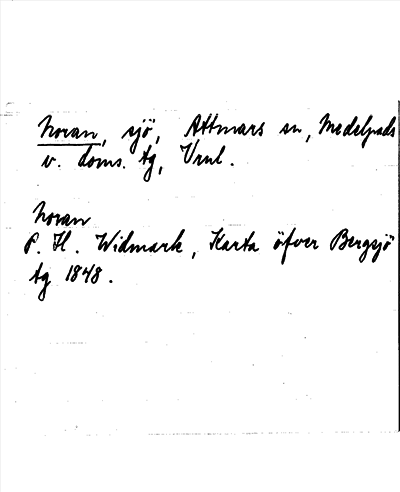 Noran, sjö, Attmars sn, Medelpads
v. doms. tg, Vrnl.
Noran
P. H. Widmark, Karta öfver Bergsjö
tg 1848.